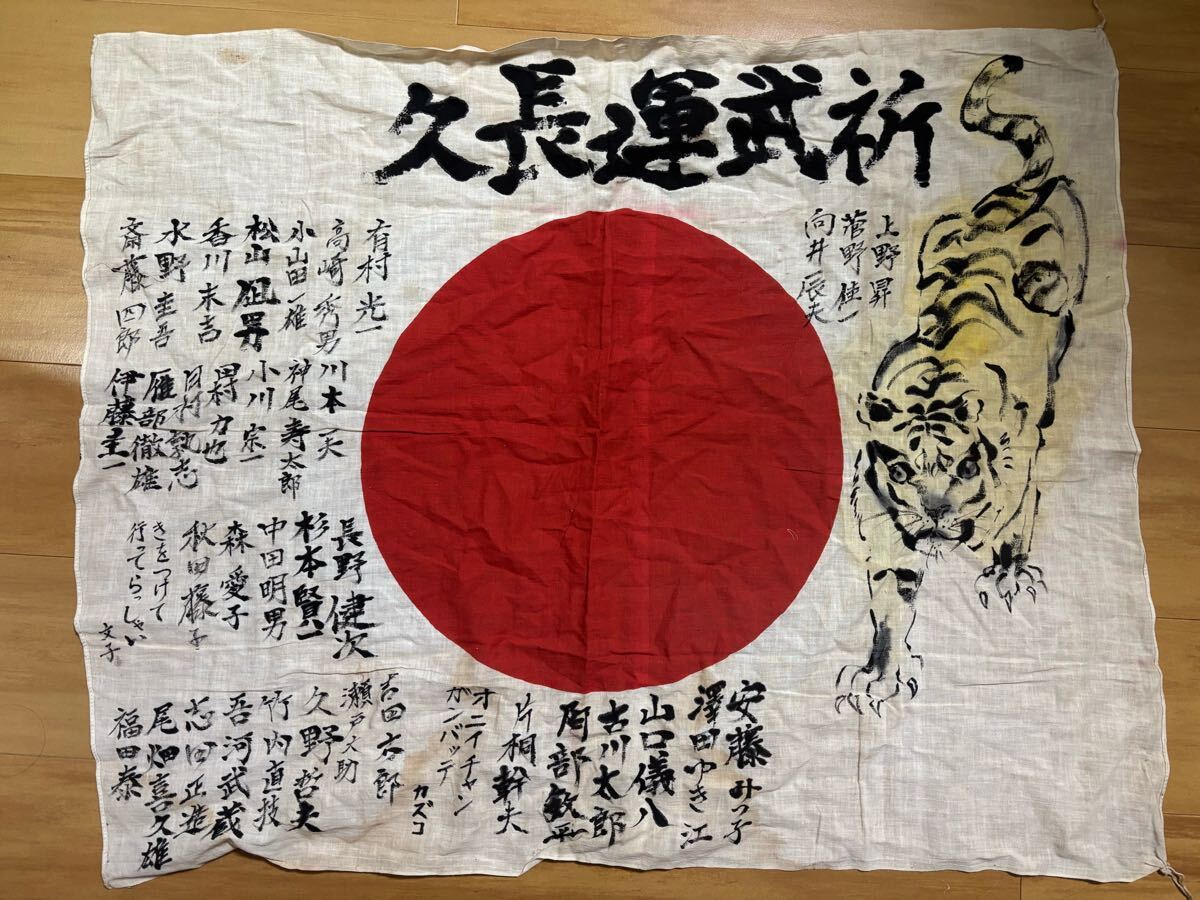 祈武運長久
上野昇
菅野佳一
向井辰夫
有村光一
高崎秀男
小山田一雄
松山狙男
香川末吉
水野圭吾
斎藤四郎
川本一夫
神尾寿太郎
小川宗一
田村力也
村敦志
雁部徹雄
伊藤圭一
長野健次
杉本賢一
中田明男
森愛子
秋田藤子
きをつけて
行ってらっしゃい
文子
安藤みつ子
澤田ゆき江
山口儀八
古川太郎
部敏平
片桐幹夫
オニイチャン
ガンバッテ
カズコ
吉田六郎
瀬戸大助
久野哲夫
竹内直技
吾河武蔵
志田正造
尾畑喜久雄
福田泰